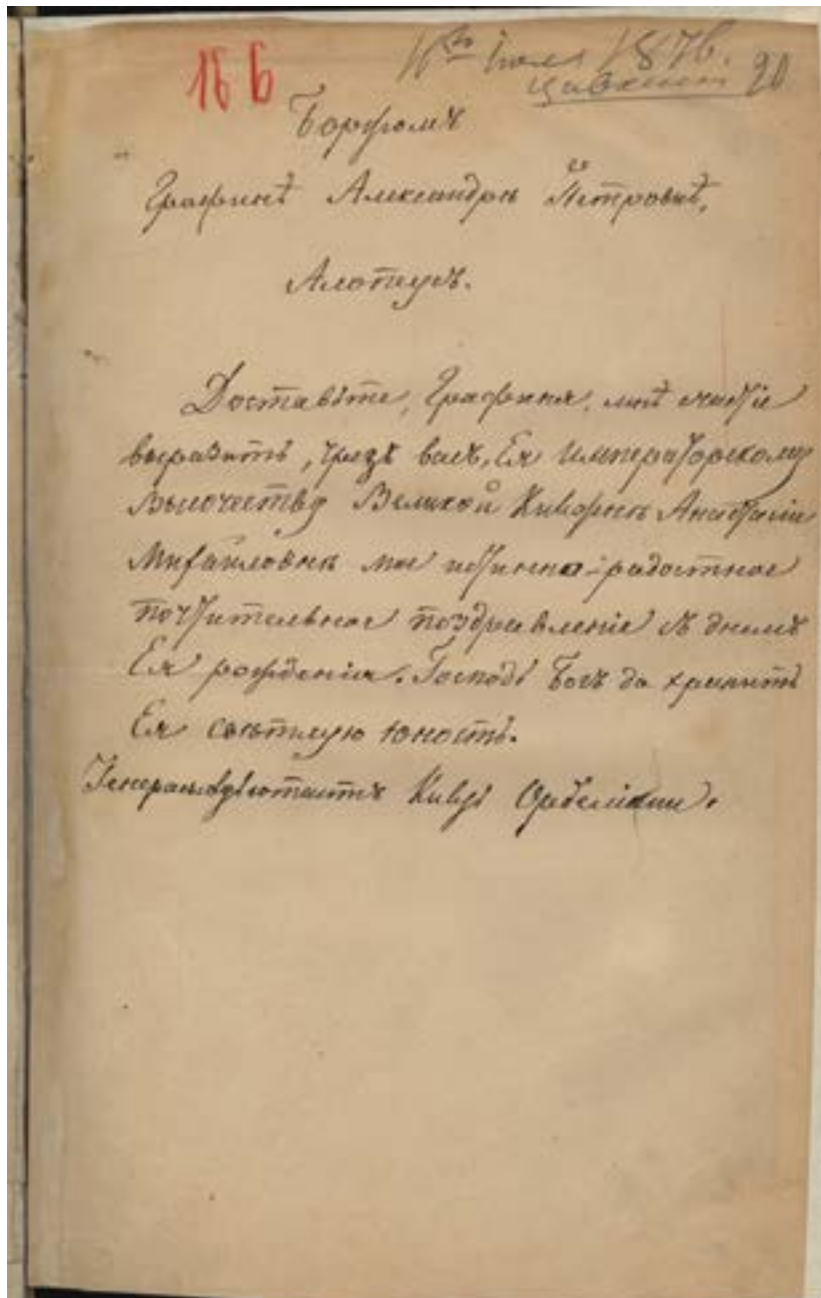 166
1876.
90
Боржомъ
Графинѣ Александрѣ Петровнѣ,
Алопеусъ.
Доставьте, Графиня, мнѣ счастіе
выразить, чрезъ васъ, Ея Императорскому
Высочеству Великой Княжнѣ Анастасіи
Михаиловнѣ мое истинно-радостное
почтительное поздравленіе съ днемъ
Ея рожденія. Господь Богъ да хранитъ
Ея свѣтлую юность.
Генералъ-Адъютантъ Князь Орбеліани.